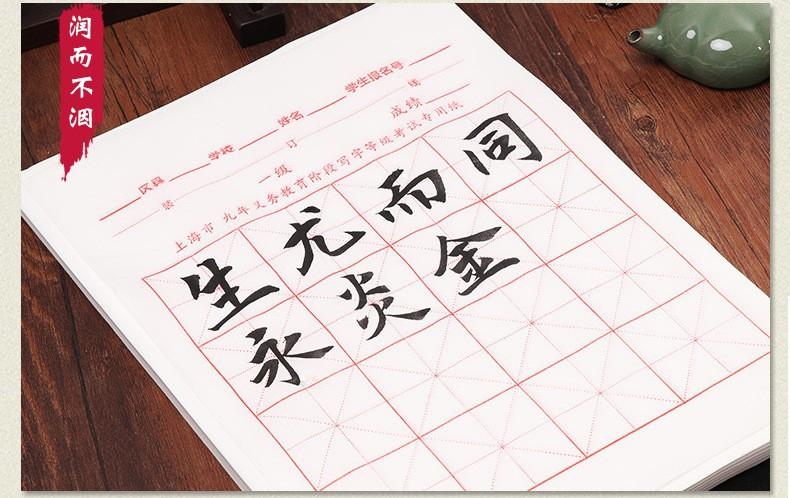 润而不洇
区县 学校 姓名 学生报名号
装 订 线
一级 成绩
上海市 九年义务教育阶段写字等级考试专用纸
生尤而同
永炎金